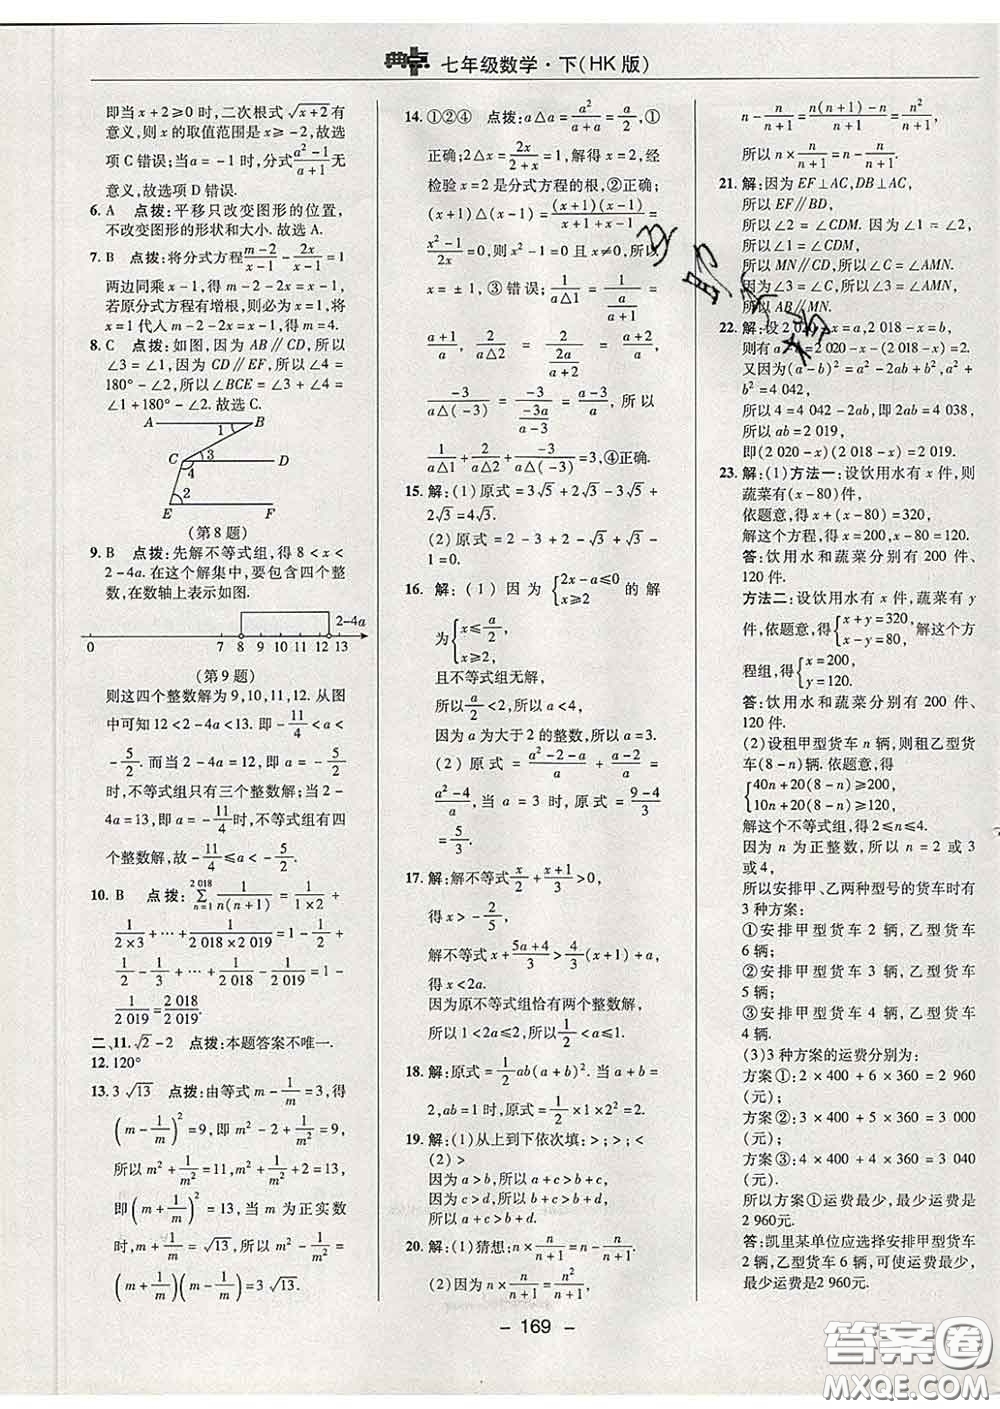 典点 七年级数学·下(HK版)
即当x+2≥0时,二次根式√(x+2)有
意义,则x的取值范围是x≥-2,故选
项C错误;当a=-1时,分式(a²-1)/(a+1)无
意义,故选项D错误.
6. A 点拨:平移只改变图形的位置,
不改变图形的形状和大小.故选A.
7. B 点拨:将分式方程(m-2)/(x-1)-2x/(x-1)=1
两边同乘x-1,得m-2-2x=x-1,
若原分式方程有增根,则必为x=1,将
x=1代入m-2-2x=x-1,得m=4.
8. C 点拨:如图,因为AB∥CD,所以
∠3=∠1,因为CD∥EF,所以∠4=
180°-∠2,所以∠BCE=∠3+∠4=
∠1+180°-∠2.故选C.
A 1 B
C 3 D
4
2
E F
(第8题)
9. B 点拨:先解不等式组,得8<x<
2-4a.在这个解集中,要包含四个整
数,在数轴上表示如图.
2-4a
0 7 8 9 10 11 12 13
(第9题)
则这四个整数解为9,10,11,12.从图
中可知12<2-4a<13.即-11/4<a<
-5/2.而当2-4a=12,即a=-5/2
时,不等式组只有三个整数解;当2-
4a=13,即a=-11/4时,不等式组有四
个整数解,故-11/4≤a<-5/2.
10. B 点拨:∑(n=1→2 018) 1/[n(n+1)]=1/(1×2)+
1/(2×3)+…+1/(2 018×2 019)=1-1/2+
1/2-1/3+…+1/2 018-1/2 019=1-
1/2 019=2 018/2 019.
二、11. √2-2 点拨:本题答案不唯一.
12. 120°
13. 3√13 点拨:由等式m-1/m=3,得
(m-1/m)²=9,即m²-2+1/m²=9,
所以m²+1/m²=11,m²+1/m²+2=13,
即(m+1/m)²=13,当m为正实数
时,m+1/m=√13,所以m²-1/m²=
(m+1/m)(m-1/m)=3√13.
14. ①②④ 点拨:a△a=a²/(a+a)=a/2,①
正确;2△x=2x/(2+x)=1,解得x=2,经
检验x=2是分式方程的根,②正确;
(x+1)△(x-1)=(x+1)(x-1)/(x+1+x-1)=
(x²-1)/2x=0,则x²-1=0且x≠0,所以
x=±1,③错误;1/(a△1)=1/(a/(a+1))=
(a+1)/a,2/(a△2)=2/(2a/(a+2))=(a+2)/a,
-3/(a△(-3))=-3/(-3a/(a-3))=(a-3)/a,所以
1/(a△1)+2/(a△2)+-3/(a△(-3))=3,④正确.
15. 解:(1)原式=3√5+2√3-3√5+
2√3=4√3.
(2)原式=2-3+2-√3+√3-
1=0.
16. 解:(1)因为{2x-a≤0 x≥2的解
为{x≤a/2 x≥2,
且不等式组无解,
所以a/2<2,所以a<4,
因为a为大于2的整数,所以a=3.
(2)原式=(a²-2-a)/a+(a-2)/a=
(a²-4)/a,当a=3时,原式=(9-4)/3
=5/3.
17. 解:解不等式x/2+(x+1)/3>0,
得x>-2/5,
解不等式x+(5a+4)/3>4/3(x+1)+a,
得x<2a.
因为原不等式组恰有两个整数解,
所以1<2a≤2,所以1/2<a≤1.
18. 解:原式=1/2ab(a+b)².当a+b=
2,ab=1时,原式=1/2×1×2²=2.
19. 解:(1)从上到下依次填:>;>;<
(2)>
因为a>b,所以a+c>b+c,
因为c>d,所以b+c>b+d,
所以a+c>b+d.
20. 解:(1)猜想:n×n/(n+1)=n-n/(n+1).
(2)因为n×n/(n+1)=n²/(n+1),
n-n/(n+1)=[n(n+1)-n]/(n+1)=n²/(n+1),
所以n×n/(n+1)=n-n/(n+1).
21. 解:因为EF⊥AC,DB⊥AC,
所以EF∥BD,
所以∠2=∠CDM.因为∠1=∠2,
所以∠1=∠CDM,
所以MN∥CD,所以∠C=∠AMN.
因为∠3=∠C,所以∠3=∠AMN,
所以AB∥MN.
22. 解:设2 020-x=a,2 018-x=b,
则有a-b=2 020-x-(2 018-x)=2.
又因为(a-b)²=a²-2ab+b²,a²+
b²=4 042,
所以4=4 042-2ab,即2ab=4 038,
所以ab=2 019,
即(2 020-x)(2 018-x)=2 019.
23. 解:(1)方法一:设饮用水有x件,则
蔬菜有(x-80)件,
依题意,得x+(x-80)=320,
解这个方程,得x=200,x-80=120.
答:饮用水和蔬菜分别有200件、
120件.
方法二:设饮用水有x件,蔬菜有y
件,依题意,得{x+y=320, x-y=80,解这个方
程组,得{x=200, y=120.
答:饮用水和蔬菜分别有200件、
120件.
(2)设租甲型货车n辆,则租乙型货
车(8-n)辆.依题意,得
{40n+20(8-n)≥200,
10n+20(8-n)≥120,
解这个不等式组,得2≤n≤4.
因为n为正整数,所以n=2或3
或4,
所以安排甲、乙两种型号的货车时有
3种方案:
①安排甲型货车2辆,乙型货车
6辆;
②安排甲型货车3辆,乙型货车
5辆;
③安排甲型货车4辆,乙型货车
4辆.
(3)3种方案的运费分别为:
方案①:2×400+6×360=2 960
(元);
方案②:3×400+5×360=3 000
(元);
方案③:4×400+4×360=3 040
(元).
所以方案①运费最少,最少运费是
2 960元.
答:凯里某单位应选择安排甲型货车
2辆,乙型货车6辆,可使运费最少,
最少运费是2 960元.
- 169 -
答案圈
MXQE.COM